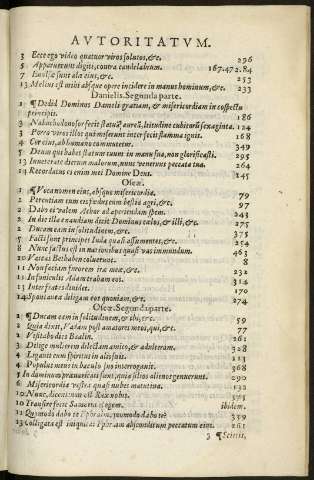 AVTORITATVM.
3 Ecce ego video quatuor viros solutos, &c. 296
5 Apparuerunt digiti, contra candelabrum. 167.472.84
7 sunt ala eius, &c. 253
13 Melius est mihi absque opere incidere in manus hominum, &c. 233
Danielis. Segunda parte.
1 ¶ Dedit Dominus Danieli gratiam, & misericordiam in conspectu
principis. 186
3 Nabuchodonosor fecit statuã aureã, altitudine cubitorũ sexaginta. 124
3 Porro viros illos qui miserunt interfecit flamma ignis. 168
4 Cor eius, ab humano commutetur. 349
5 Deum qui habet flatum tuum in manu sua, non glorificasti. 295
13 Inueterate dierum malorum, nunc venerunt peccata tua. 264
14 Recordatus es enim mei Domine Deus. 145
Oseæ.
1 ¶ Voca nomen eius, absque misericordia. 79
2 Percutiam eum esi bestia agri, &c. 97
2 Dabo ei vallem Achor ad aperiendam spem. 243
2 In die illa exaudiam dicit Dominus cælos, & illi, &c. 275
2 Ducam eam in solitudinem, &c. 375
5 Facti sunt principes Iuda quasi assumentes, &c. 254
8 Nunc factus est in nationibus quasi vas immundum. 463
10 Vaccas Bethauen coluerunt. 8
11 Non faciam furorem iræ meæ, &c. 232
11 In funiculis Adam traham eos. 314
13 Inter fratres diuidet. 170
14 Spontanea diligam eos quoniam, &c. 274
Oseæ. Segunda parte.
2 ¶ Ducam eam in solitudinem, & ibi, &c. 59
2 Quia dixit, Vadam post amatores meos, qui, &c. 77
2 Visitabo dies Baalin. 261
3 Dilige mulierem dilectam amico, & adulteram. 328
4 Ligauit eum spiritus in alis suis. 213
4 Populus meus in baculo suo interrogauit. 368
5 In dominum præuaricati sunt, quia filios alienos genuerunt. 290
6 Misericordia vestra quasi nubes matutina. 132
10 Nunc, dicent, non est Rex nobis. 375
10 Transire fecit Samaria regem. ibidem.
11 Quomodo dabo te Ephraim, quomodo dabo te? 339
13 Colligata est iniquitas Ephraim absconditum peccatum eius. 261
3 ¶ Scitis,